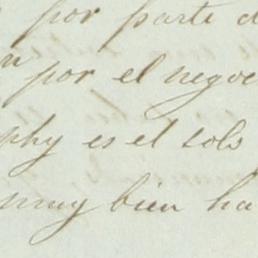 por parte d
n por el negoc
phy es el sols
muy bien ha